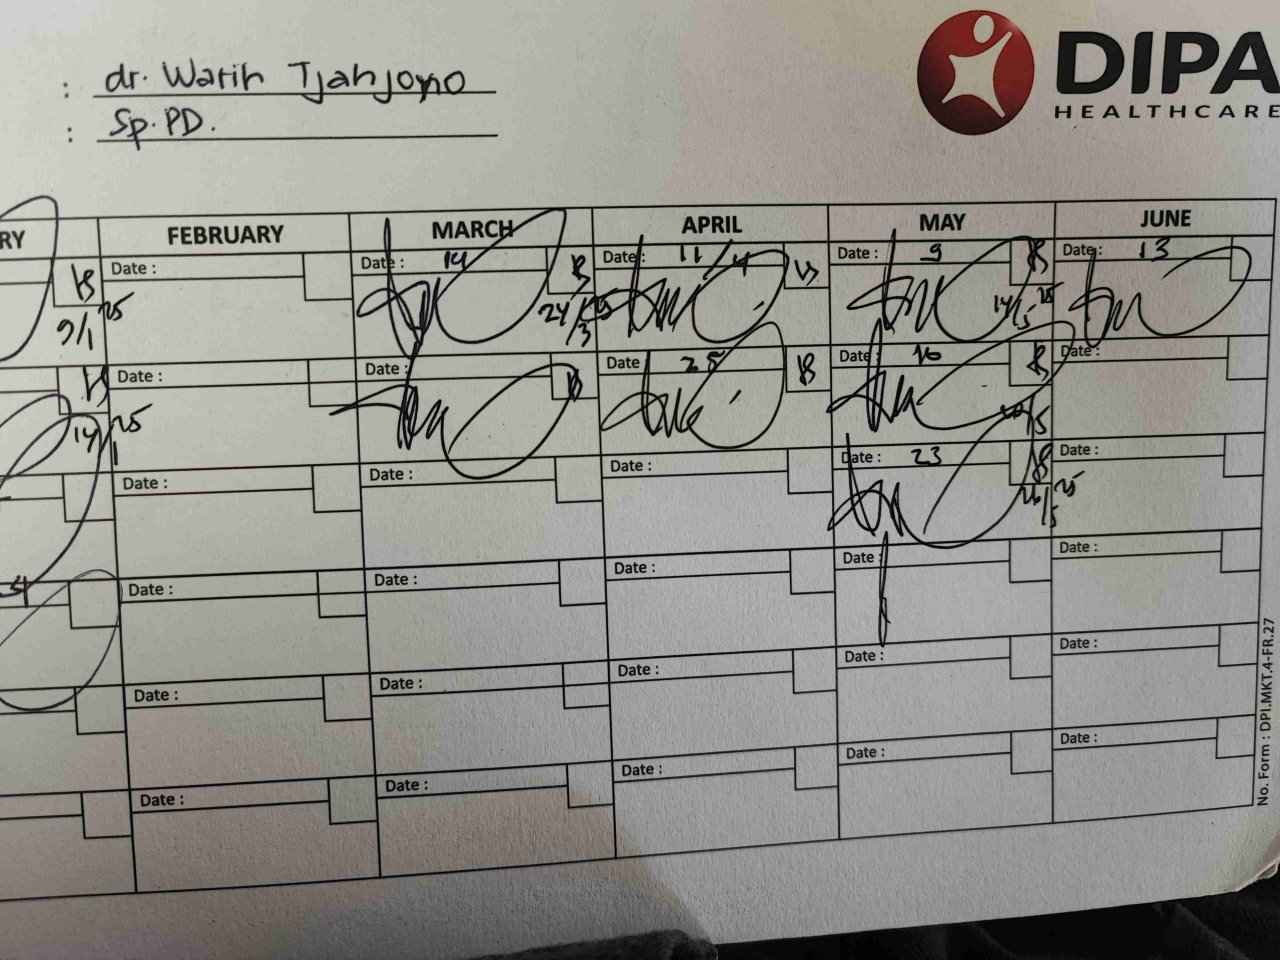 : dr. Warih Tjahjono
: Sp.PD.
DIPA
HEALTHCARE
RY FEBRUARY MARCH APRIL MAY JUNE
Date : Date : 14 Date : 11/4 Date : 9 Date : 13
9/1 25 24/3 25 14/5 25
Date : Date : Date 25 Date 16 Date :
14/1 25 /5
Date : Date : Date : Date : 23 Date :
26/5 25
Date : Date : Date : Date : Date :
Date : Date : Date : Date : Date :
Date : Date : Date : Date : Date :
No. Form : DPI.MKT.4-FR.27